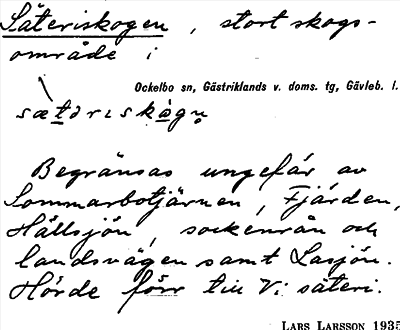 Säteriskogen, stort skogs-
område i
Ockelbo sn, Gästriklands v. doms. tg, Gävleb. l.
Begränsas ungefär av
Sommarbotjärnen, Fjärden,
Hällsjön, sockenrån och
landsvägen samt Lasjön.
Hörde förr till Vi säteri.
LARS LARSSON 1935